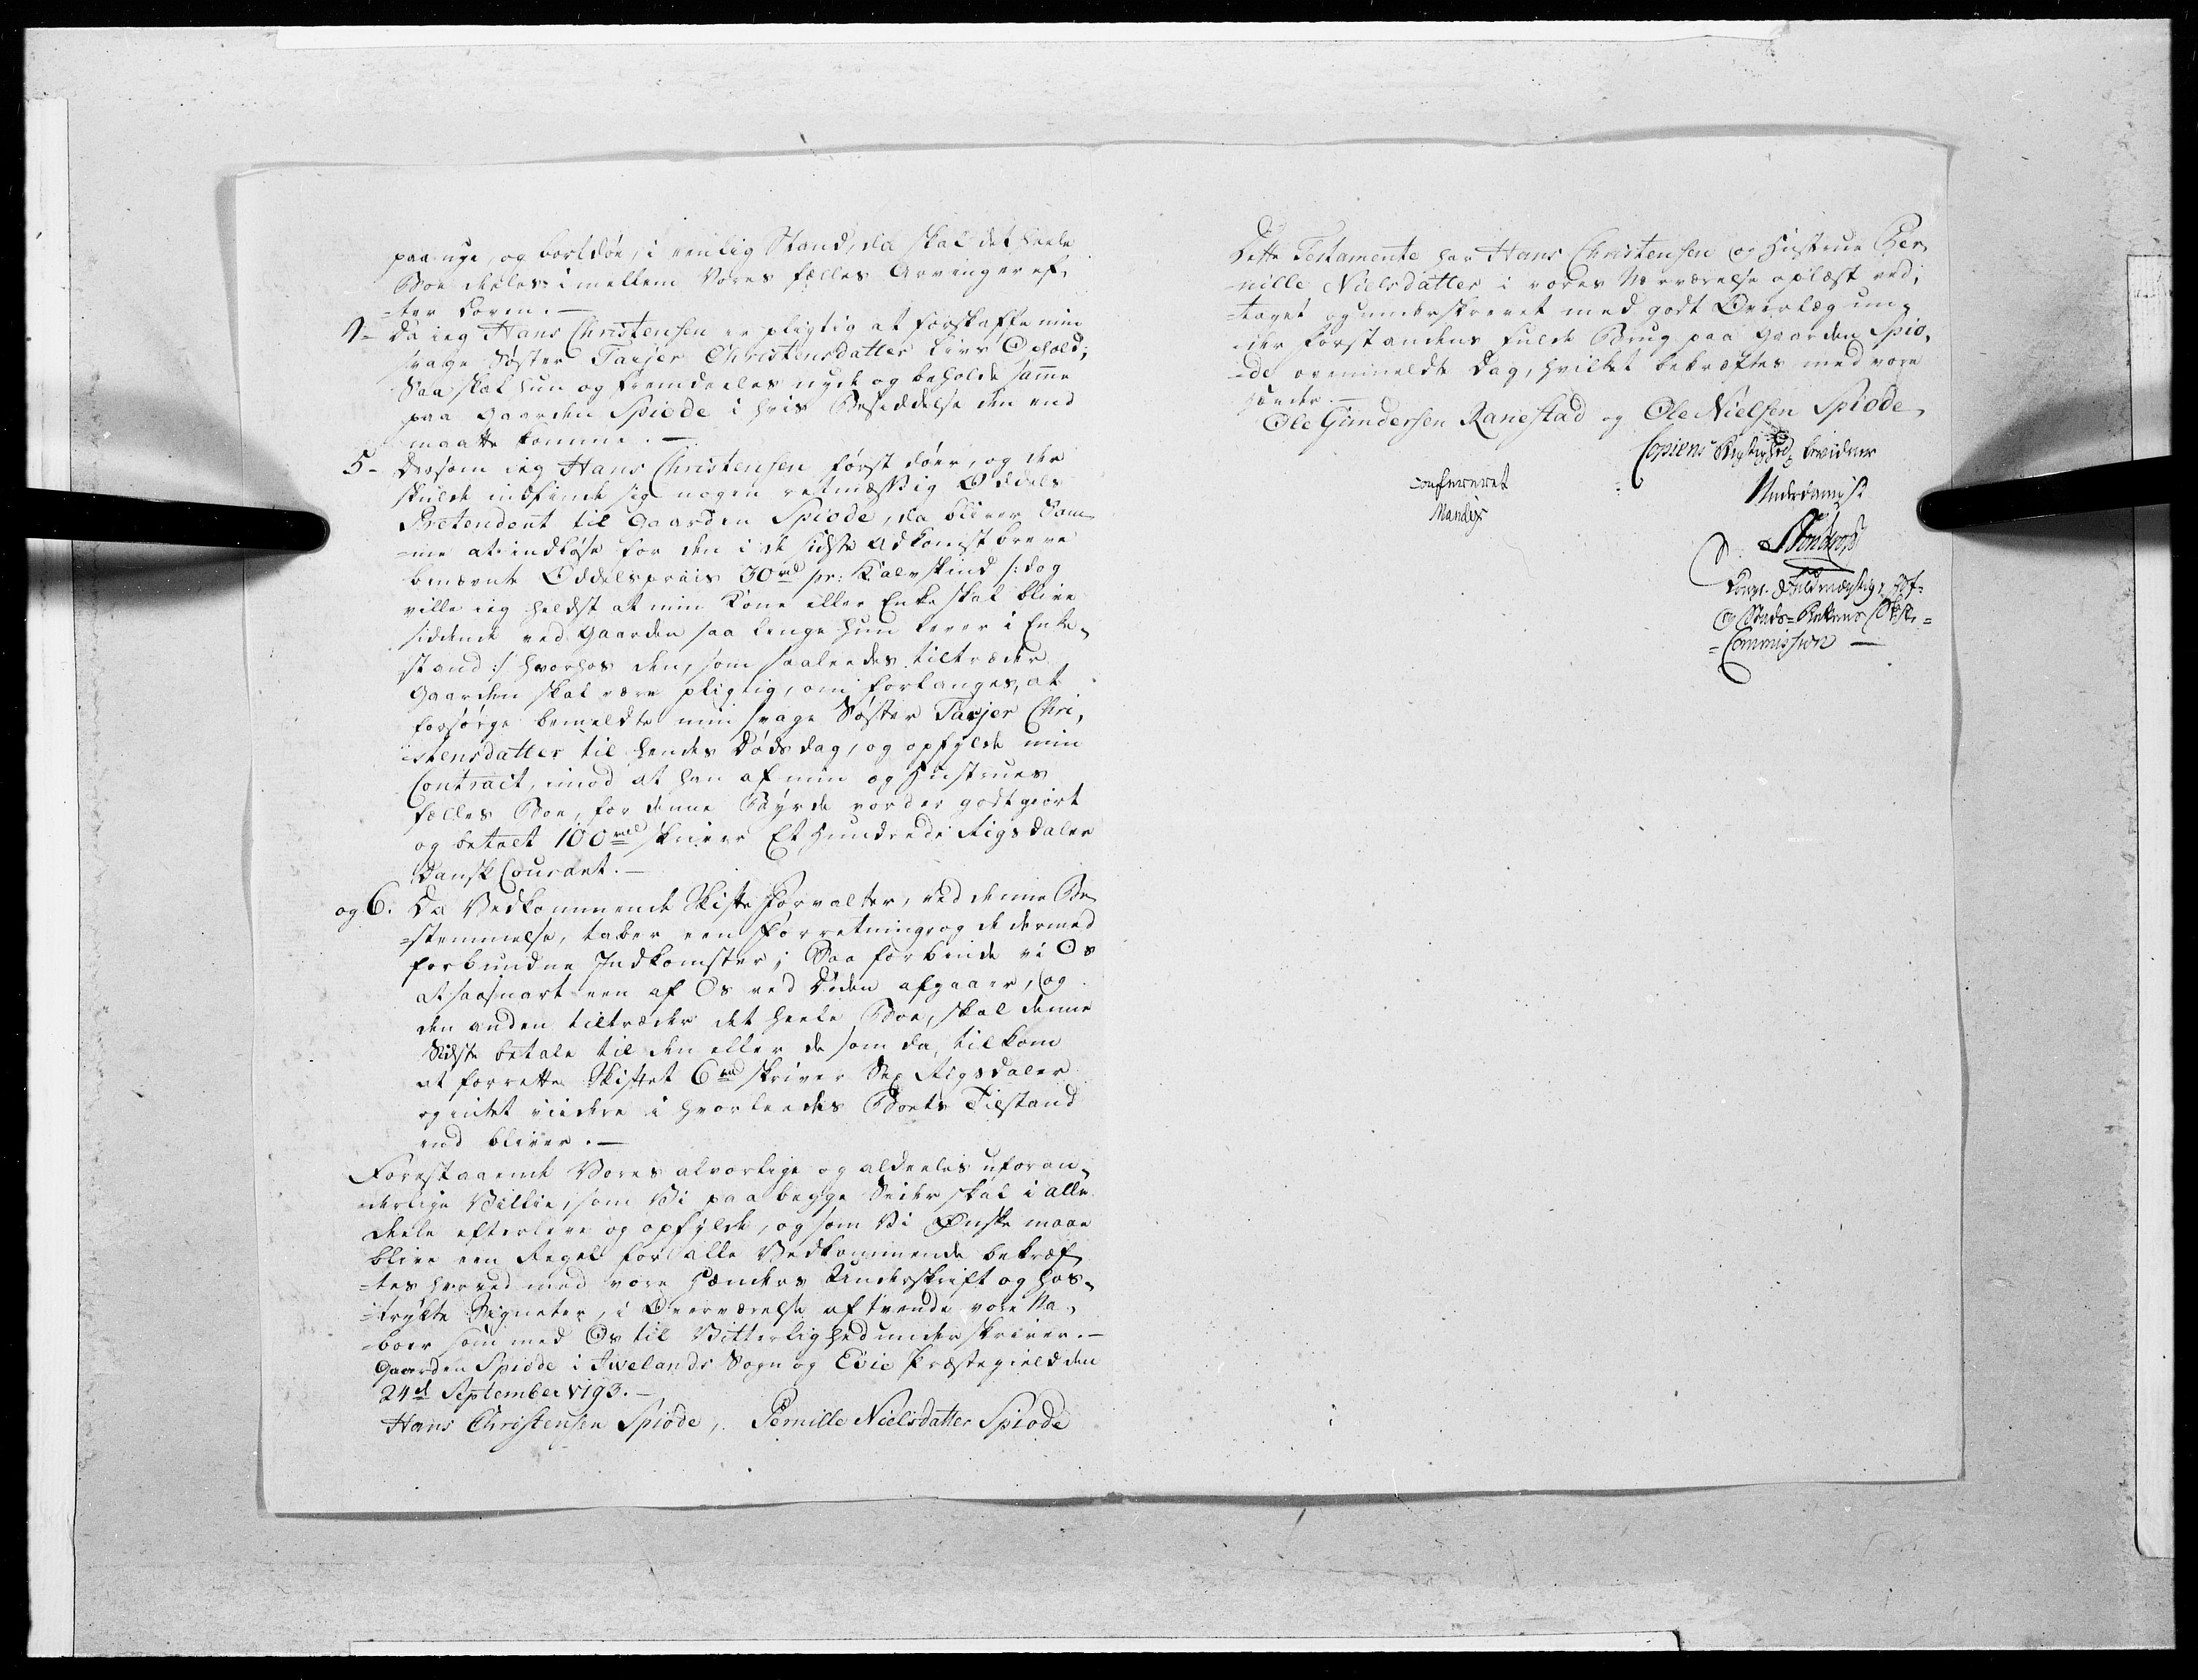 paa nye, og bortdøe, i eenlig Stand, da skal det heele
Boe deeles imellem Vores fælles Arvinger ef-
-ter Loven.-
4- Da jeg Hans Christensen er pligtig at forskaffe min
svage Søster Tarjer Christensdatter Livs Ophold;
Saa skal hun og fremdeeles nyde og beholde samme
paa Gaarden Spiøde i hvis Besiddelse den end
maatte komme.-
5- Dersom jeg Hans Christensen først døer, og der
skulde indfinde sig nogen retmæssig Oddels
Prætendent til Gaarden Spiøde, da bliver Sam-
-me at indløse for den i de sidste Adkomstbreve
benævnte Oddelspriis 30 rd pr: Kalvskind /: dog
ville jeg heldst at min Kone eller Enke skal blive
siddende ved Gaarden saa lenge hun lever i Enke-
stand :/ hvorhos den, som saaledes tiltræder
Gaarden skal være pligtig, om forlanges, at
forsørge bemeldte min svage Søster Tarjer Chri-
-stensdatter til hendes Døds dag, og opfylde min
Contract, imod at han af min og Hustrues
fælles Boe, for denne Byrde vorder godtgiort
og betalt 100 rd skriver Et Hundrede Rigsdaler
Dansk Courant.-
og 6. Da Vedkommende Skifte Forvalter, ved denne Be-
-stemmelse, taber een Forretning og de dermed
forbundne Indkomster; Saa forbinde vi Os
at saasnart een af Os ved Døden afgaaer, og
den anden tiltræder det heele Boe, skal denne
Sidste betale til den eller de som da tilkom
at forrette Skiftet 6 rd skriver Sex Rigsdaler
og intet viidere i hvorledes Boets Tilstand
end bliver.-
Forestaaende Vores alvorlige og aldeeles uforan-
-derlige Villie, som Vi paa begge Sider skal i alle
deele efterleve og opfylde, og som Vi Ønske maae
blive een Regel for alle Vedkommende bekræf-
-tes herved med vore Hænders Underskrift og hos-
-trykte Signeter, i Overværelse af tvende vore Na-
-boer som med Os til Vitterlighed underskriver.-
Gaarden Spiøde i Ivelands Sogn og Evie Præstegield den
24d September 1793.-
Hans Christensen Spiøde, Pernille Nielsdatter Spiøde
Dette Testamente har Hans Christensen og Hustrue Per-
-nille Nielsdatter i vores Nærværelse oplæst ved-
-taget og underskrevet med godt Overlæg un-
-der Forstandens fulde Brug paa Gaarden Spiø-
-de ovenmeldte Dag, hvilket bekræftes med vore
Hænder.-
Ole Gundersen Ranestad og Ole Nielsen Spiøde
Copiens Rigtighed bevidner
confereret
Mandix
Underdanigst
Commission